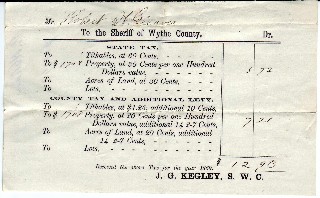 Mr. Robert
To the Sheriff of Wythe County. Dr.
STATE TAX.
To Tithables, at 80 Cents,
To $ 1708 Property, at 50 Cents per one Hundred
Dollars value,
To Acres of Land, at 30 Cents,
To Lots,
COUNTY TAX AND ADDITIONAL LEVY.
To Tithables, at $1.25, additional 10 Cents,
To $ 1708 Property, at 25 Cents per one Hundred
Dollars value, additional 14 2-7 Cents,
To Acres of Land, at 20 Cents, additional
14 2-7 Cents,
To Lots,
$ 12
Received the above Tax for the year
J. G. KEGLEY, S. W. C.